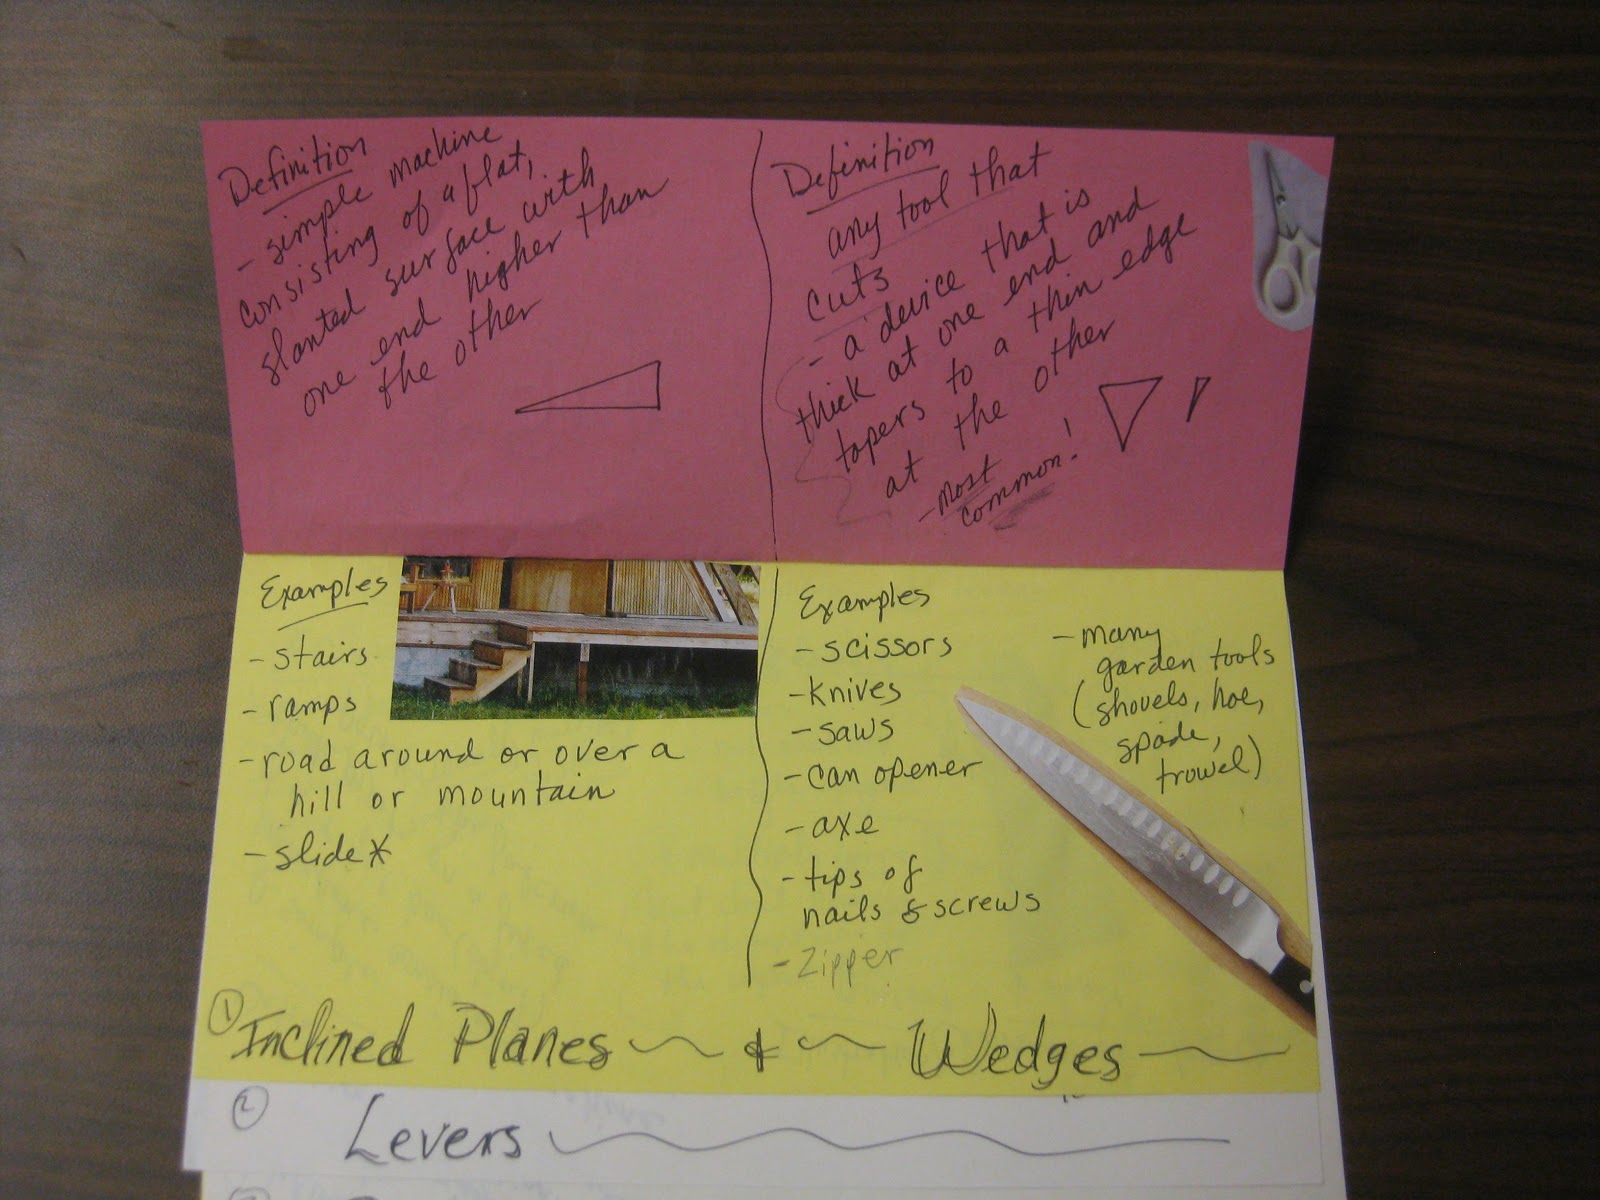 Definition
- simple machine
consisting of a flat,
slanted surface with
one end higher than
the other
Definition
any tool that
cuts
- a device that is
thick at one end and
tapers to a thin edge
at the other
- most
common!
Examples
- stairs
- ramps
- road around or over a
hill or mountain
- slide*
Examples
- scissors
- knives
- saws
- can opener
- axe
- tips of
nails & screws
- zipper
- many
garden tools
(shovels, hoe,
spade,
trowel)
① Inclined Planes & Wedges
② Levers